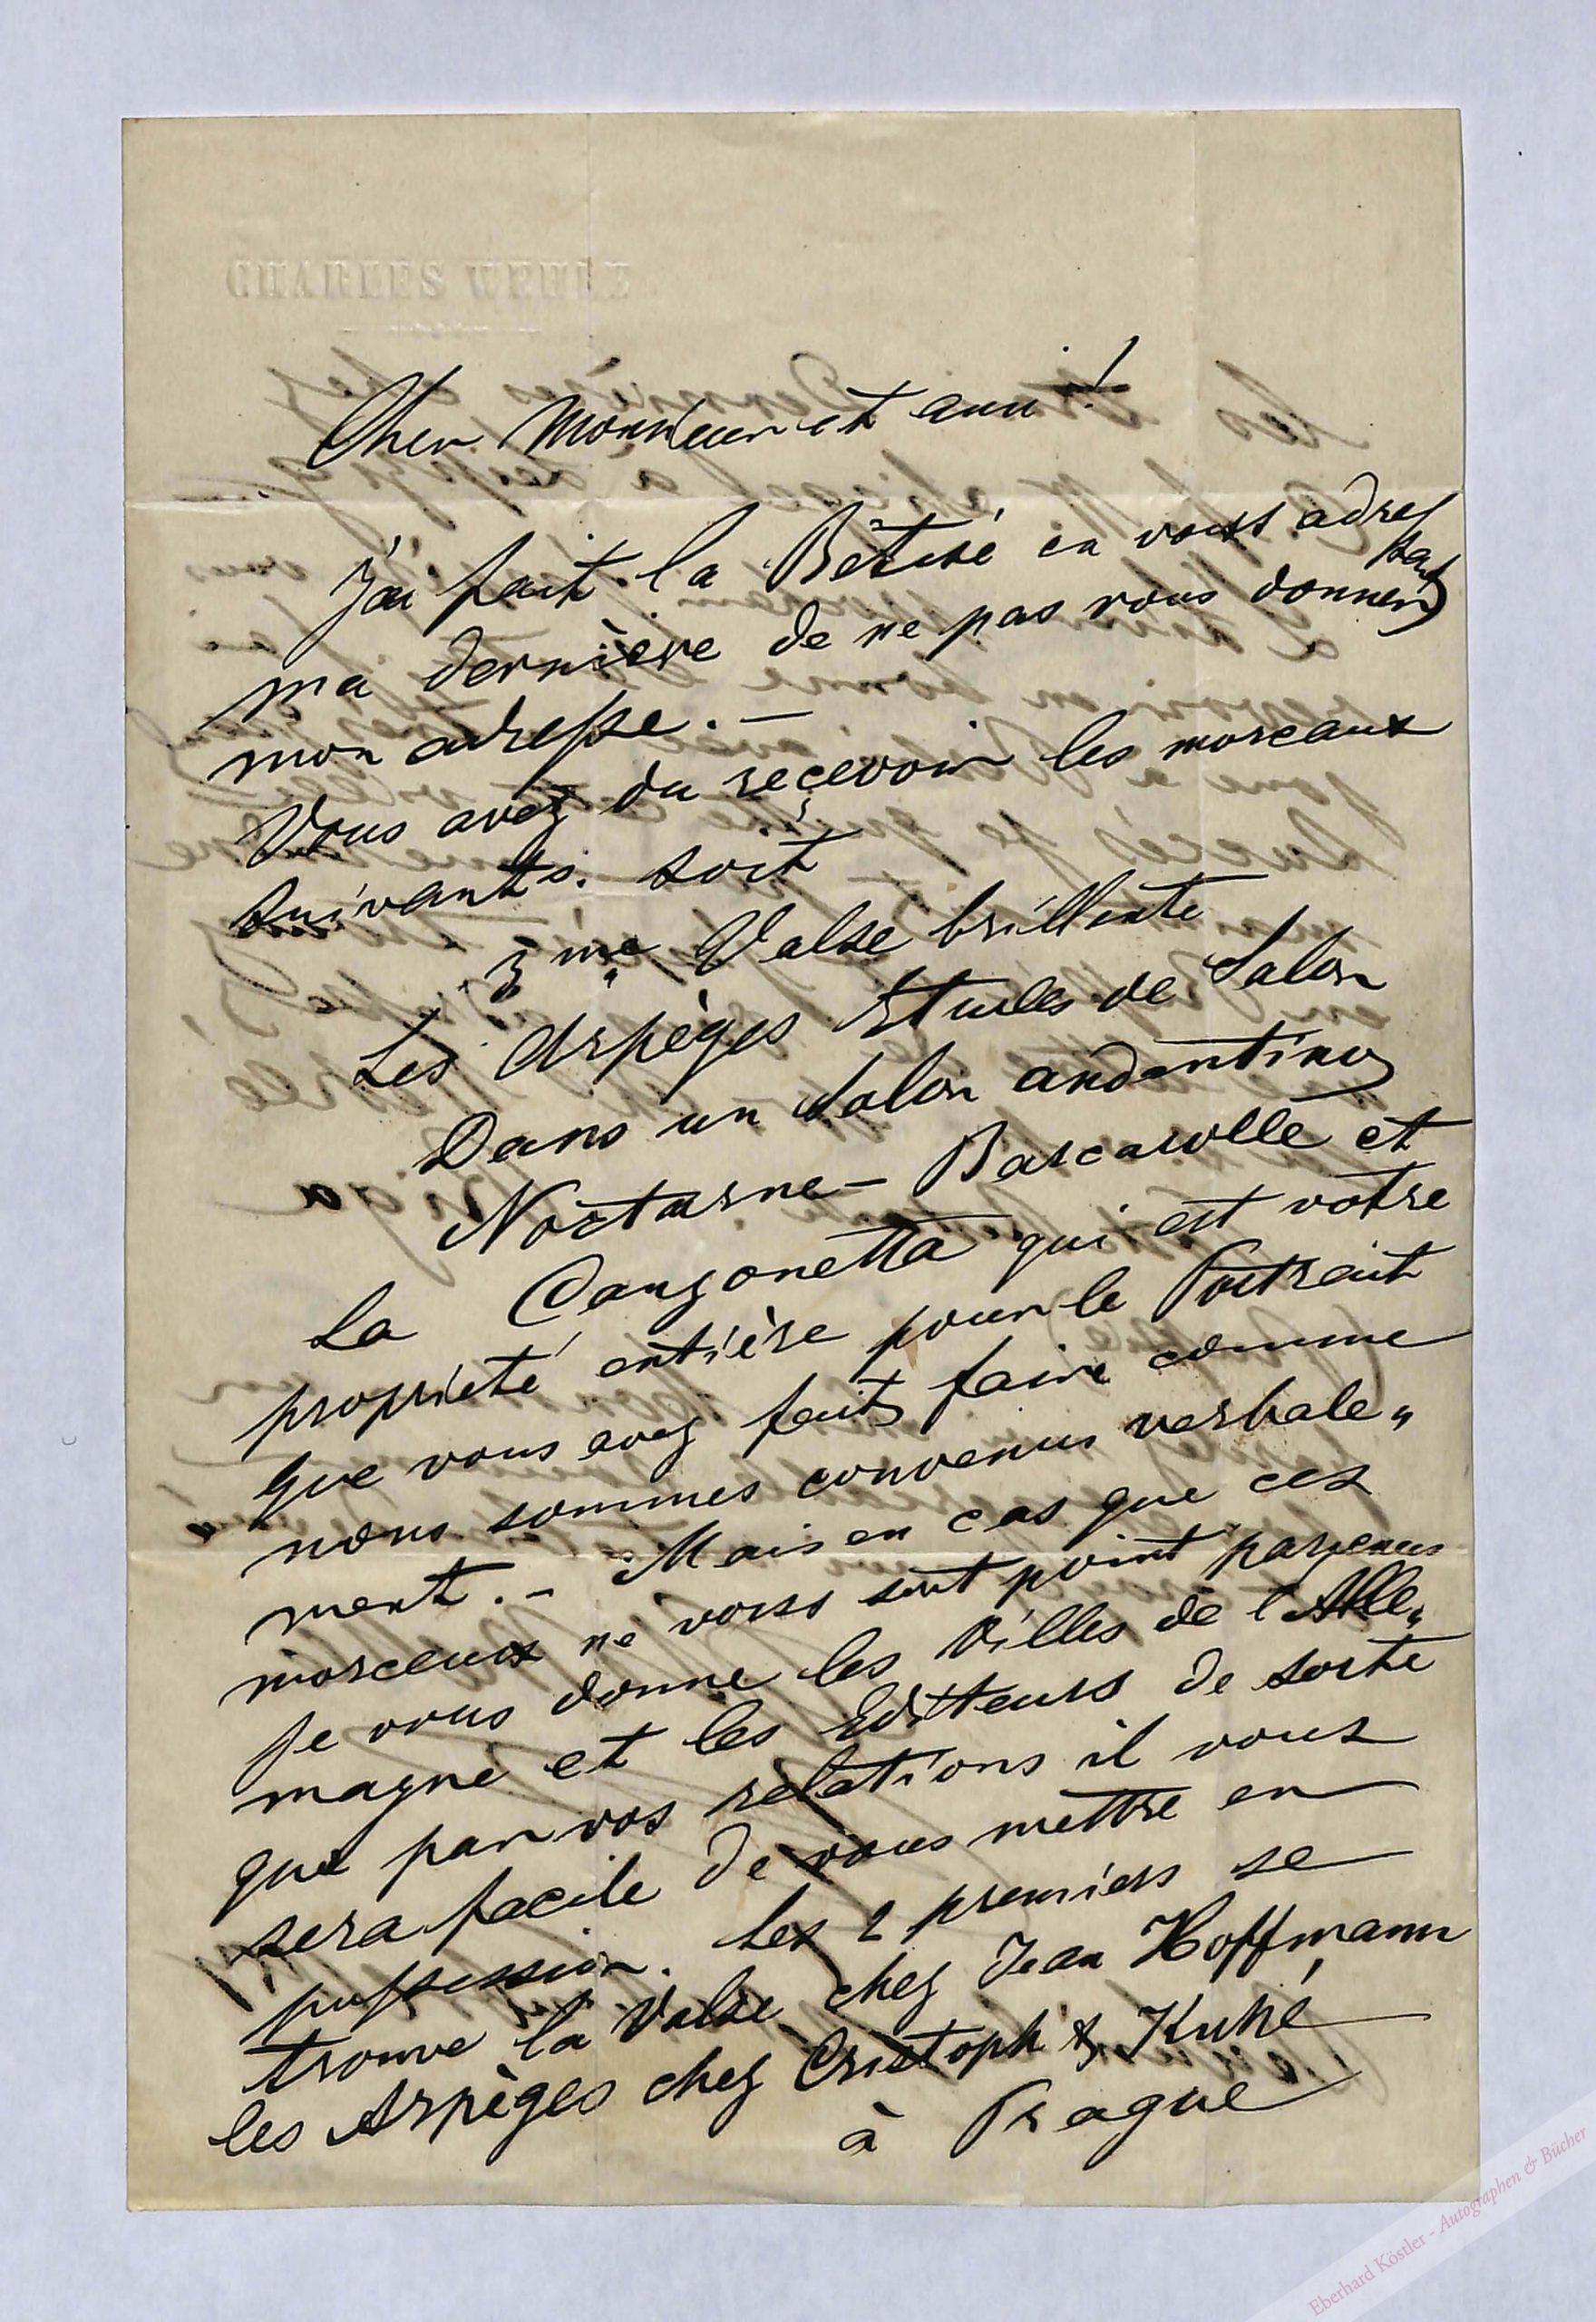 CHARLES WEHLE
Cher Monsieur et ami!
J'ai fait la Bétisé en vous adres
sant
ma dernière de ne pas vous donner
mon adresse. —
Vous avez du reçevoir les morceaux
suivants. soit
3me Valse brillente
Les Arpèges Etudes de Salon
Dans un Salon andantino
Noctursne - Barcarolle et
La Canzonetta qui est votre
proprieté entière pour le Portrait
que vous avez fait faire comme
nous sommes convenus verbale„
ment. – Mais en cas que ces
morceaux ne vous sont point parvenus
je vous donne les Villes de l'Alle„
magne et les Editeurs de sorte
que par vos relations il vous
sera facile de vous mettre en
possession. Les 2 premiers se
trouve la Valse chez Jean Hoffmann
les Arpèges chez Cristoph & Kuhé
à Prague
Eberhard Köstler - Autographen & Bücher